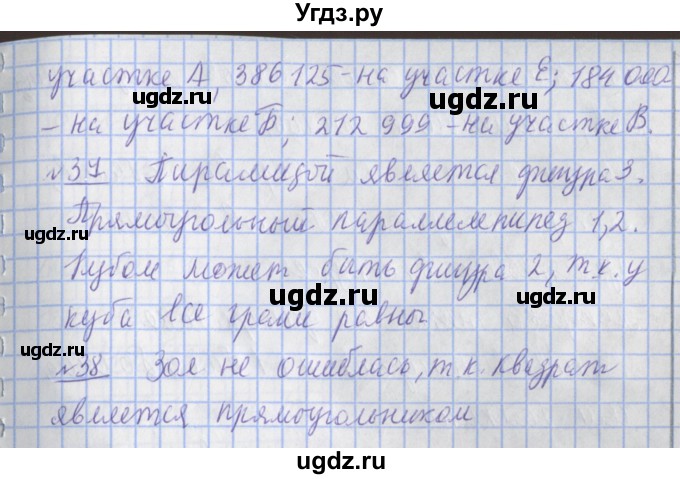 Угдз.ру
участке А, 386 125 - на участке Е; 184 000
- на участке Б; 212 999 - на участке В.
№37 Пирамидой является фигура 3.
Прямоугольный параллелепипед 1,2.
Кубом может быть фигура 2, т.к. у
куба все грани равны
№38 Зоя не ошиблась, т.к. квадрат
является прямоугольником
ugdz.ru
ugdz.ru
ugdz.ru
ugdz.ru
ugdz.ru
ugdz.ru
ugdz.ru
ugdz.ru
ugdz.ru